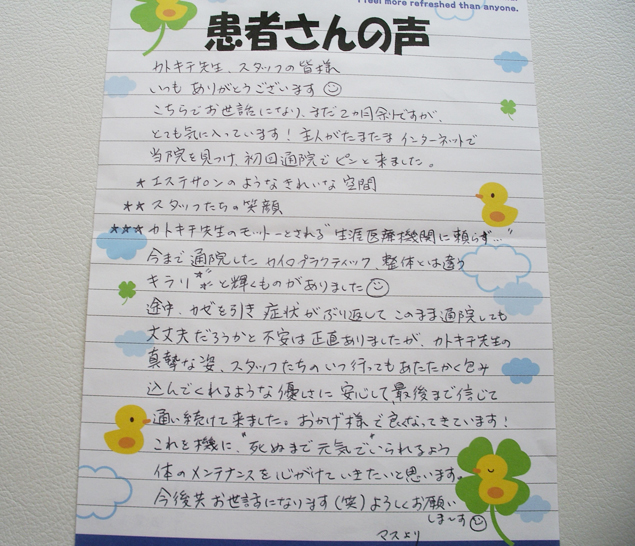 I feel more refreshed than anyone.
患者さんの声
カトキチ先生、スタッフの皆様
いつも ありがとうございます
こちらでお世話になり、まだ2ヵ月余りですが、
とても気に入っています！主人がたまたま インターネットで
当院を見つけ、初回通院でピンと来ました。
* エステサロンのようなきれいな空間
** スタッフたちの笑顔
*** カトキチ先生のモットーとされる"生涯医療機関に頼らず…"
今まで通院した カイロプラクティック、整体とは違う
キラリ と輝くものがありました
途中、カゼを引き 症状がぶり返して このまま通院しても
大丈夫だろうかと 不安は正直ありましたが、カトキチ先生の
真摯な姿、スタッフたちの いつ行っても あたたかく包み
込んでくれるような優しさに 安心して、最後まで信じて
通い続けて来ました。おかげ様で良くなってきています！
これを機に、"死ぬまで元気で"いられるよう
体のメンテナンスを心がけていきたいと思います。
今後共 お世話になります(笑)よろしくお願い
しま〜す
マスより